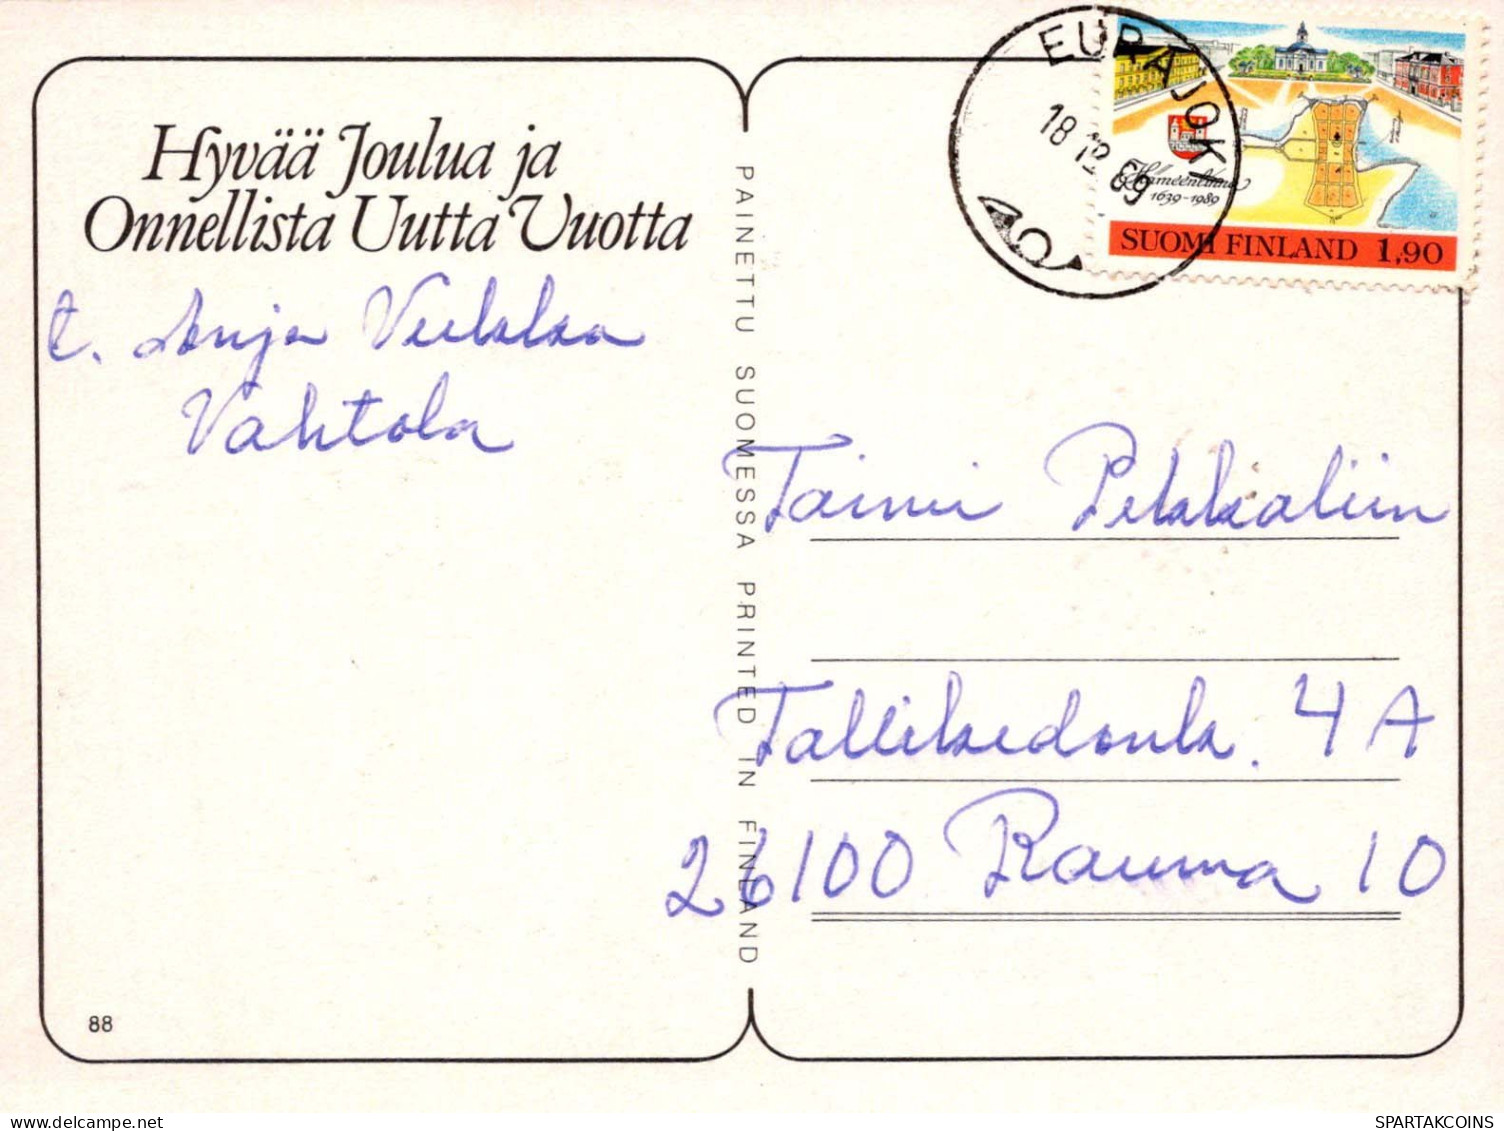 Hyvää Joulua ja
Onnellista Uutta Vuotta
t. Anja Veikkka
Vahtola
88
PAINETTU SUOMESSA PRINTED IN FINLAND
EURAJOKI
18 12 89
Hämeenlinna
1639-1989
SUOMI FINLAND 1,90
Taimi Pekkaliin
Tallikedonk. 4 A
26100 Rauma 10
delcampe.net
SPARTAKCOINS